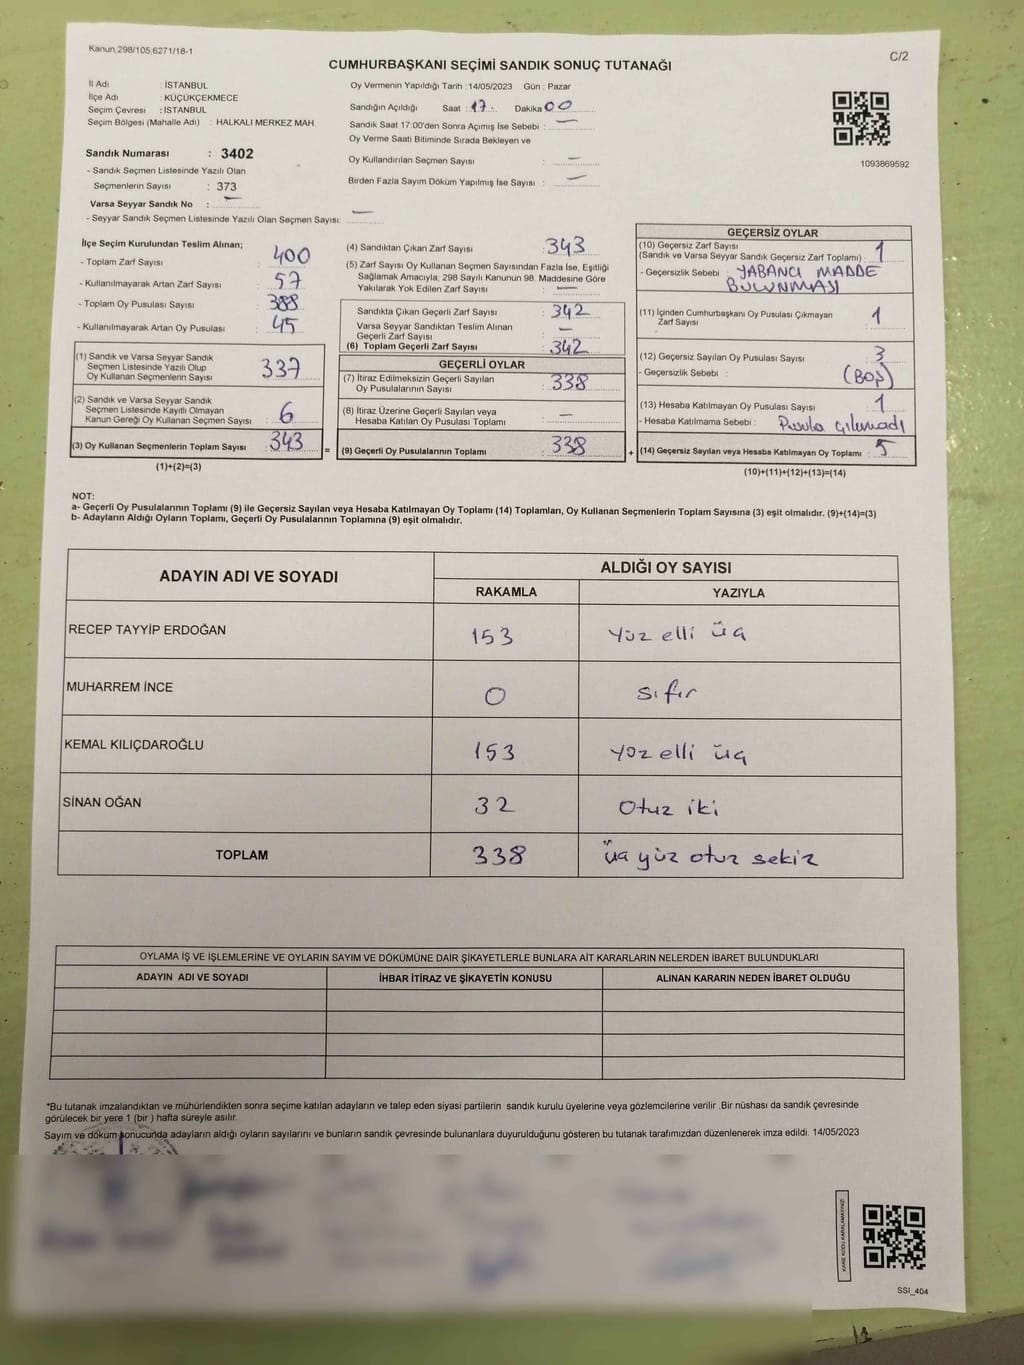 Kanun,298/105;6271/18-1
C/2
CUMHURBAŞKANI SEÇİMİ SANDIK SONUÇ TUTANAĞI
İl Adı : İSTANBUL
İlçe Adı : KÜÇÜKÇEKMECE
Seçim Çevresi : İSTANBUL
Seçim Bölgesi (Mahalle Adı) : HALKALI MERKEZ MAH.
Sandık Numarası : 3402
- Sandık Seçmen Listesinde Yazılı Olan
Seçmenlerin Sayısı : 373
Varsa Seyyar Sandık No : —
- Seyyar Sandık Seçmen Listesinde Yazılı Olan Seçmen Sayısı: —
Oy Vermenin Yapıldığı Tarih :14/05/2023 Gün : Pazar
Sandığın Açıldığı Saat : 17 Dakika 00
Sandık Saat 17:00'den Sonra Açımış İse Sebebi : —
Oy Verme Saati Bitiminde Sırada Bekleyen ve
Oy Kullandırılan Seçmen Sayısı : —
Birden Fazla Sayım Döküm Yapılmış İse Sayısı : —
1093869592
İlçe Seçim Kurulundan Teslim Alınan;
- Toplam Zarf Sayısı : 400
- Kullanılmayarak Artan Zarf Sayısı : 57
- Toplam Oy Pusulası Sayısı : 388
- Kullanılmayarak Artan Oy Pusulası : 45
(1) Sandık ve Varsa Seyyar Sandık
Seçmen Listesinde Yazılı Olup
Oy Kullanan Seçmenlerin Sayısı : 337
(2) Sandık ve Varsa Seyyar Sandık
Seçmen Listesinde Kayıtlı Olmayan
Kanun Gereği Oy Kullanan Seçmen Sayısı : 6
(3) Oy Kullanan Seçmenlerin Toplam Sayısı : 343
(1)+(2)=(3)
(4) Sandıktan Çıkan Zarf Sayısı : 343
(5) Zarf Sayısı Oy Kullanan Seçmen Sayısından Fazla İse, Eşitliği
Sağlamak Amacıyla, 298 Sayılı Kanunun 98. Maddesine Göre
Yakılarak Yok Edilen Zarf Sayısı : —
Sandıkta Çıkan Geçerli Zarf Sayısı : 342
Varsa Seyyar Sandıktan Teslim Alınan
Geçerli Zarf Sayısı : —
(6) Toplam Geçerli Zarf Sayısı : 342
GEÇERLİ OYLAR
(7) İtiraz Edilmeksizin Geçerli Sayılan
Oy Pusulalarının Sayısı : 338
(8) İtiraz Üzerine Geçerli Sayılan veya
Hesaba Katılan Oy Pusulası Toplamı : —
= (9) Geçerli Oy Pusulalarının Toplamı : 338
GEÇERSİZ OYLAR
(10) Geçersiz Zarf Sayısı
(Sandık ve Varsa Seyyar Sandık Geçersiz Zarf Toplamı) : 1
- Geçersizlik Sebebi : YABANCI MADDE
BULUNMASI
(11) İçinden Cumhurbaşkanı Oy Pusulası Çıkmayan
Zarf Sayısı : 1
(12) Geçersiz Sayılan Oy Pusulası Sayısı : 3
- Geçersizlik Sebebi : (Boş)
(13) Hesaba Katılmayan Oy Pusulası Sayısı : 1
- Hesaba Katılmama Sebebi : Pusula çıkmadı
+ (14) Geçersiz Sayılan veya Hesaba Katılmayan Oy Toplamı : 5
(10)+(11)+(12)+(13)=(14)
NOT:
a- Geçerli Oy Pusulalarının Toplamı (9) ile Geçersiz Sayılan veya Hesaba Katılmayan Oy Toplamı (14) Toplamları, Oy Kullanan Seçmenlerin Toplam Sayısına (3) eşit olmalıdır. (9)+(14)=(3)
b- Adayların Aldığı Oyların Toplamı, Geçerli Oy Pusulalarının Toplamına (9) eşit olmalıdır.
ADAYIN ADI VE SOYADI
ALDIĞI OY SAYISI
RAKAMLA YAZIYLA
RECEP TAYYİP ERDOĞAN 153 Yüz elli üç
MUHARREM İNCE 0 sıfır
KEMAL KILIÇDAROĞLU 153 yüz elli üç
SİNAN OĞAN 32 Otuz iki
TOPLAM 338 üç yüz otuz sekiz
OYLAMA İŞ VE İŞLEMLERİNE VE OYLARIN SAYIM VE DÖKÜMÜNE DAİR ŞİKAYETLERLE BUNLARA AİT KARARLARIN NELERDEN İBARET BULUNDUKLARI
ADAYIN ADI VE SOYADI İHBAR İTİRAZ VE ŞİKAYETİN KONUSU ALINAN KARARIN NEDEN İBARET OLDUĞU
*Bu tutanak imzalandıktan ve mühürlendikten sonra seçime katılan adayların ve talep eden siyasi partilerin sandık kurulu üyelerine veya gözlemcilerine verilir .Bir nüshası da sandık çevresinde
görülecek bir yere 1 (bir ) hafta süreyle asılır.
Sayım ve döküm sonucunda adayların aldığı oyların sayılarını ve bunların sandık çevresinde bulunanlara duyurulduğunu gösteren bu tutanak tarafımızdan düzenlenerek imza edildi. 14/05/2023
KARE KODU KARALAMAYINIZ!
SSI_404